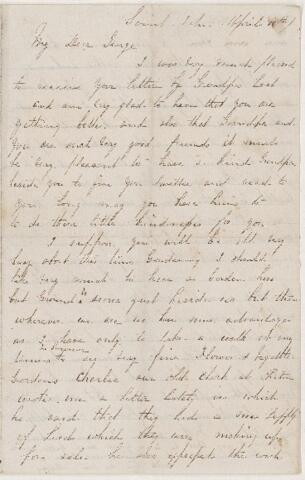 April
My Dear George
I was very much pleased
to receive your letter to Grandpa last
and am very glad to hear that you are
getting better and also that Grandpa and
you are such very good friends it must
be very pleasant to have a kind Grandpa
beside you to give you and read to
you long may you have him
to do these little kindnesses for you
I suppose you will be all very
busy about this time Gardening I should
like very much to have a Garden here
but Ground is very just beside us but then
wherever we are we have some advantages
as I have only to take a walk of ten
minutes to see very fine Flower & vegetable
Gardens Charlie our old clerk at
wrote me a letter lately in which
he said that they had a new supply
of Seeds which they were making up
for sale he also the work